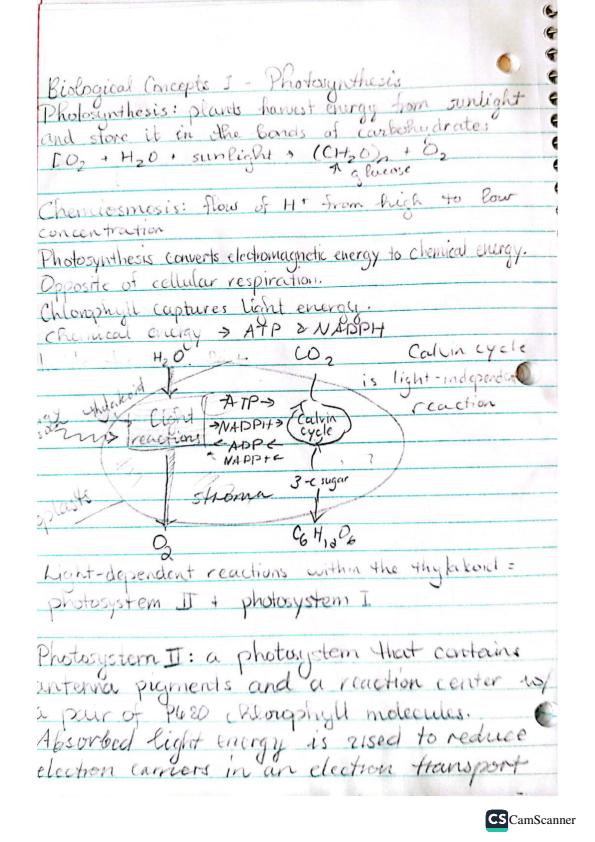 Biological Concepts I - Photosynthesis
Photosynthesis: plants harvest energy from sunlight
and store it in the bonds of carbohydrates
CO2 + H2O + sunlight → (CH2O)n + O2
↑ glucose
Chemiosmosis: flow of H+ from high to low
concentration
Photosynthesis converts electromagnetic energy to chemical energy.
Opposite of cellular respiration.
Chlorophyll captures light energy.
Chemical energy → ATP & NADPH
H2O CO2 Calvin cycle
is light-independent
thylakoid reaction
Light ATP→
reactions →NADPH→ Calvin
cycle
←ADP←
NADP+←
?
stroma 3-c sugar
O2 C6H12O6
Light-dependent reactions within the thylakoid =
photosystem II + photosystem I
Photosystem II: a photosystem that contains
antenna pigments and a reaction center w/
a pair of P680 chlorophyll molecules.
Absorbed light energy is used to reduce
electron carriers in an electron transport
CS CamScanner